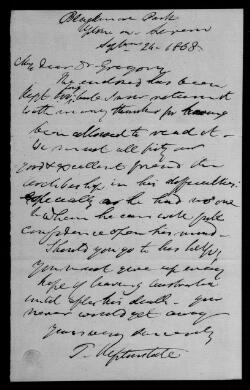 Blackmore Park
Upton on Severn
Septem 24. 1868.
My dear Dr Gregory
The enclosed has been
kept long but I now return it
with many thanks for having
been allowed to read it.
We must all pity our
good & excellent friend the
Archbishop in his difficulties
Especially as he has no one
to whom he can with full
confidence open his mind.
Should you go to his help,
You must give up every
hope of leaving Australia
until after his death – you
never would get away
Yours very sincerely
T.